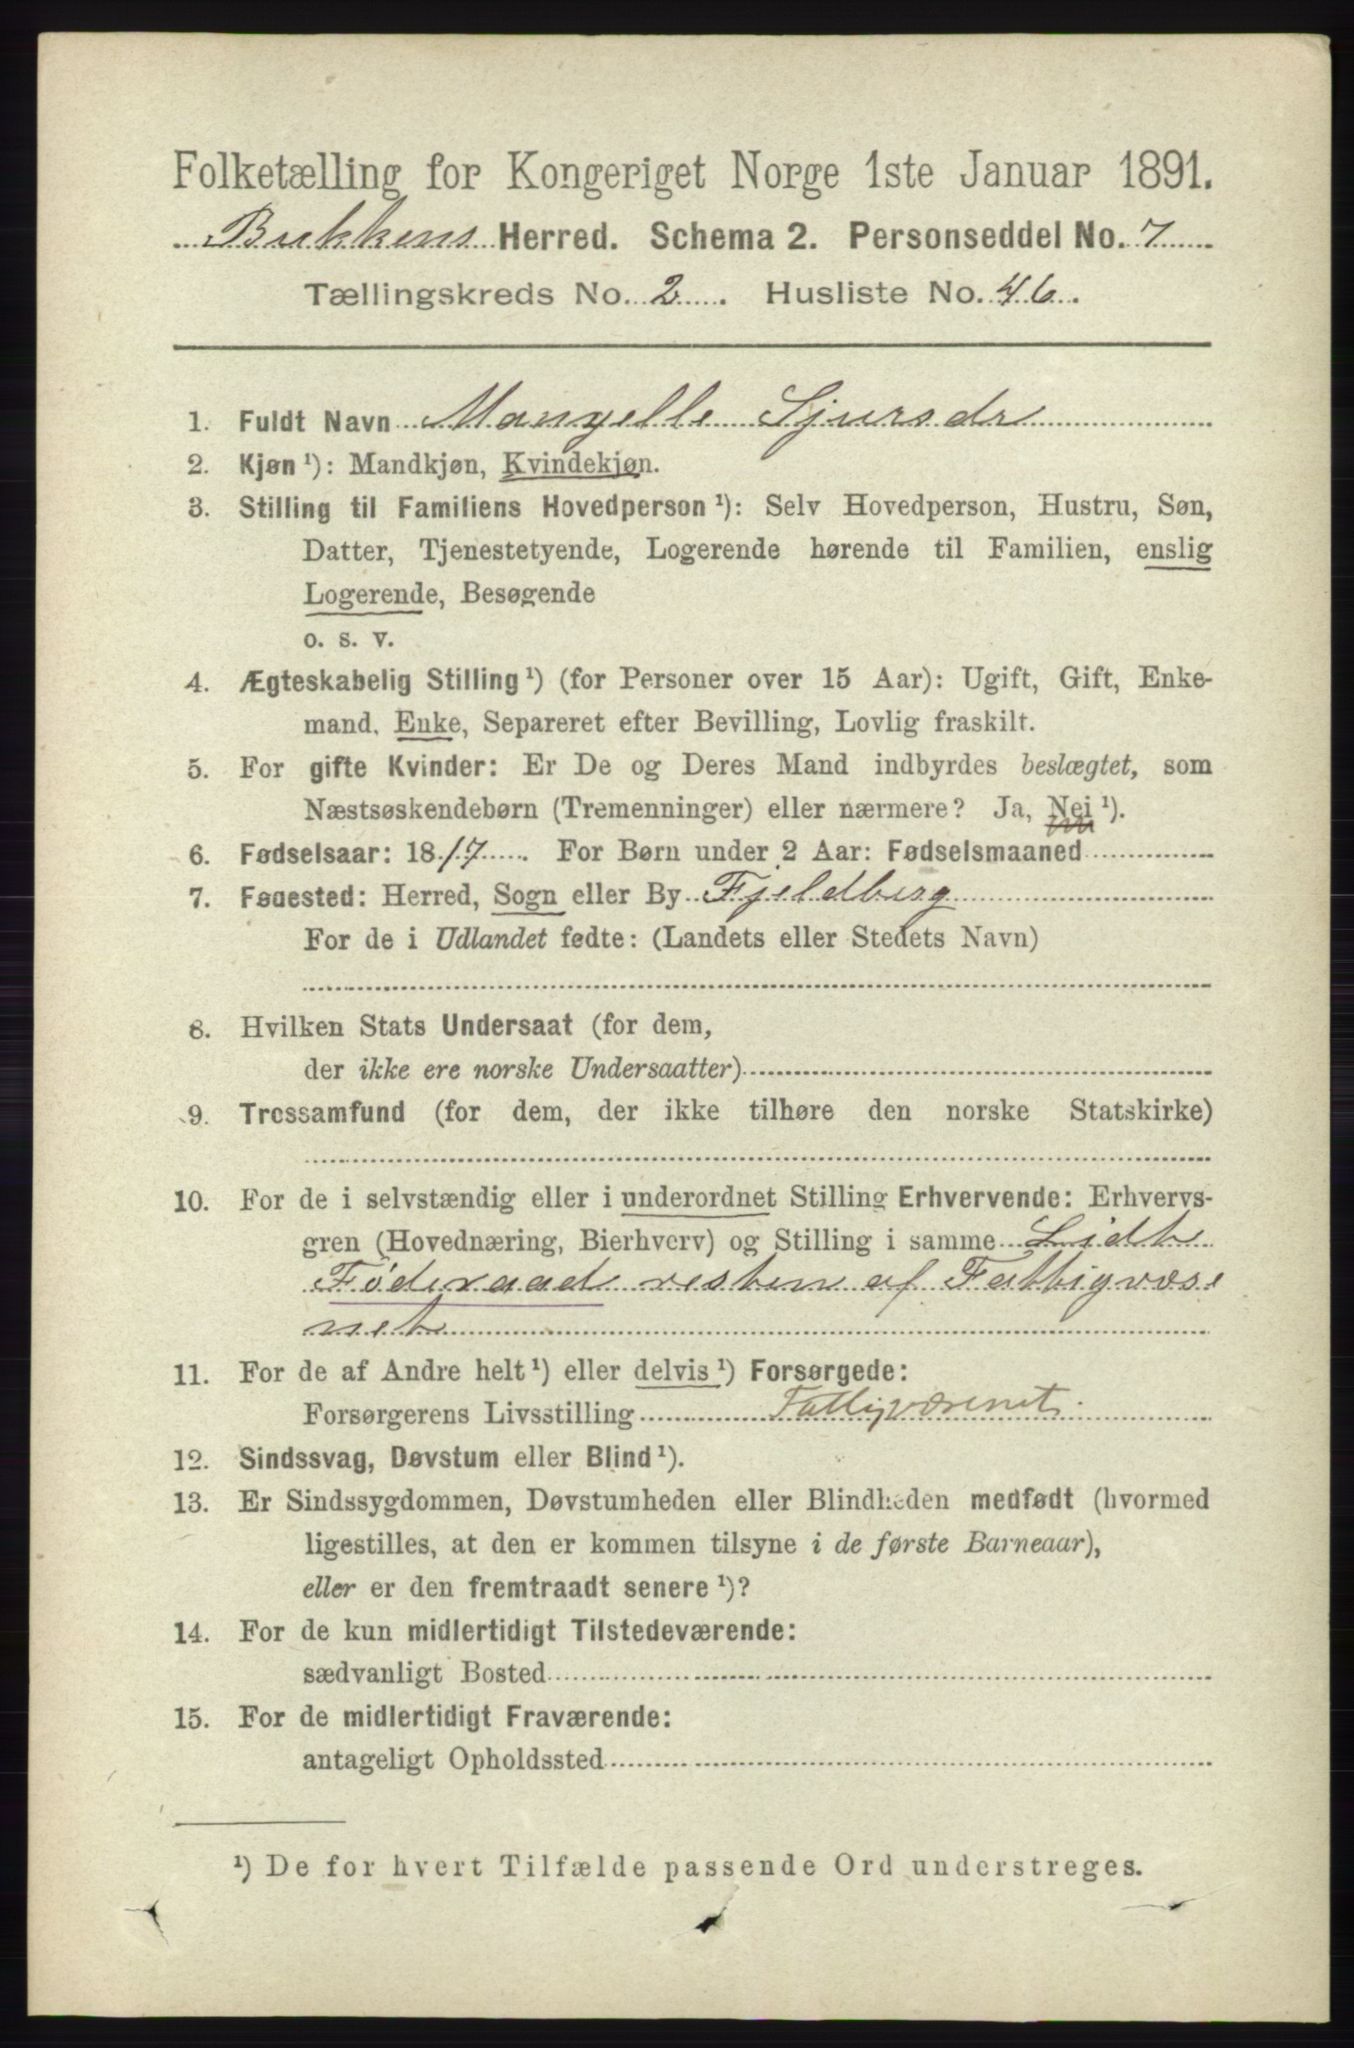 Folketælling for Kongeriget Norge 1ste Januar 1891.
Bukkens Herred. Schema 2. Personseddel No. 7
Tællingskreds No. 2. Husliste No. 46.
1. Fuldt Navn Mangelle Sjursdr
2. Kjøn ¹): Mandkjøn, Kvindekjøn.
3. Stilling til Familiens Hovedperson ¹): Selv Hovedperson, Hustru, Søn,
Datter, Tjenestetyende, Logerende hørende til Familien, enslig
Logerende, Besøgende
o. s. v.
4. Ægteskabelig Stilling ¹) (for Personer over 15 Aar): Ugift, Gift, Enke-
mand, Enke, Separeret efter Bevilling, Lovlig fraskilt.
5. For gifte Kvinder: Er De og Deres Mand indbyrdes beslægtet, som
Næstsøskendebørn (Tremenninger) eller nærmere? Ja, Nei ¹).
6. Fødselsaar: 1817. For Børn under 2 Aar: Fødselsmaaned
7. Fødested: Herred, Sogn eller By Fjeldberg
For de i Udlandet fødte: (Landets eller Stedets Navn)
8. Hvilken Stats Undersaat (for dem,
der ikke ere norske Undersaatter)
9. Trossamfund (for dem, der ikke tilhøre den norske Statskirke)
10. For de i selvstændig eller i underordnet Stilling Erhvervende: Erhvervs-
gren (Hovednæring, Bierhverv) og Stilling i samme Lidt
Føderaad resten af Fattigvæse
net
11. For de af Andre helt ¹) eller delvis ¹) Forsørgede:
Forsørgerens Livsstilling Fattigvæsenet
12. Sindssvag, Døvstum eller Blind ¹).
13. Er Sindssygdommen, Døvstumheden eller Blindheden medfødt (hvormed
ligestilles, at den er kommen tilsyne i de første Barneaar),
eller er den fremtraadt senere ¹)?
14. For de kun midlertidigt Tilstedeværende:
sædvanligt Bosted
15. For de midlertidigt Fraværende:
antageligt Opholdssted
¹) De for hvert Tilfælde passende Ord understreges.